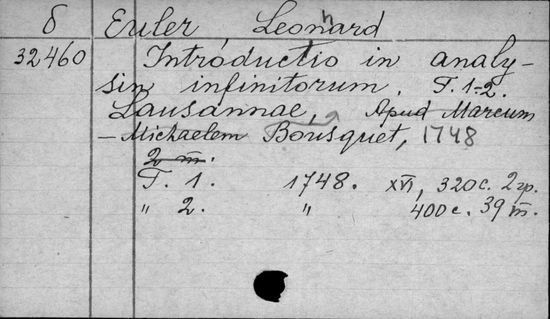 б Euler, Leonhard
32460 Introductio in analy-
sin infinitorum. T. 1-2.
Lausannae, Apud Marcum
-Michaelem Bousquet, 1748
2 т.
T. 1. 1748. XVI, 320 c. 2 гр.
" 2. " 400 c. 39 т.